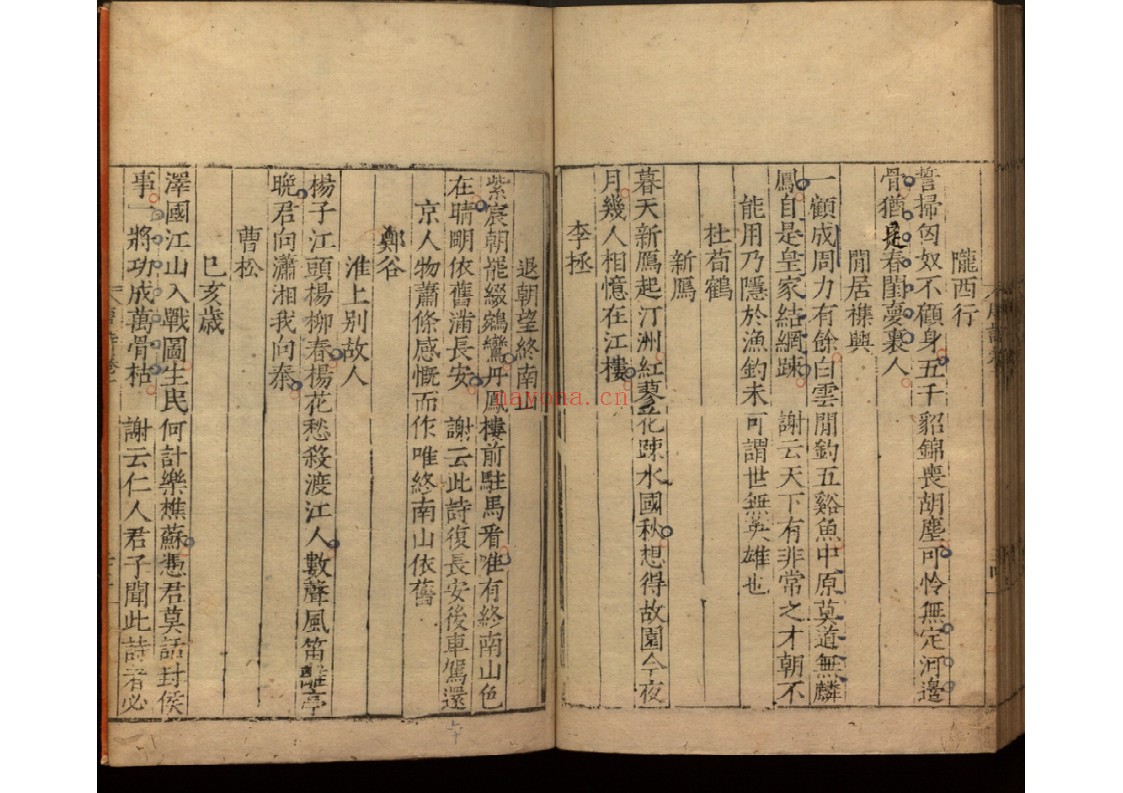 隴西行
誓掃匈奴不顧身五千貂錦喪胡塵可怜無定河邊
骨猶是春閨夢裏人
閒居襍興
一顧成周力有餘白雲閒釣五谿魚中原莫道無麟
鳳自是皇家結網踈 謝云天下有非常之才朝不
能用乃隱於漁釣未可謂世無英雄也
杜荀鶴
新鴈
暮天新鴈起汀洲紅蓼花踈水國秋想得故園今夜
月幾人相憶在江樓
李拯
退朝望終南山
紫宸朝罷綴鵷鸞丹鳳樓前駐馬看唯有終南山色
在晴明依舊滿長安 謝云此詩復長安後車駕還
京人物蕭條感慨而作唯終南山依舊
鄭谷
淮上別故人
楊子江頭楊柳春楊花愁殺渡江人數聲風笛離亭
晚君向瀟湘我向秦
曹松
己亥歳
澤國江山入戰圖生民何計樂樵蘇憑君莫話封侯
事一將功成萬骨枯 謝云仁人君子聞此詩者必
nayona.cn